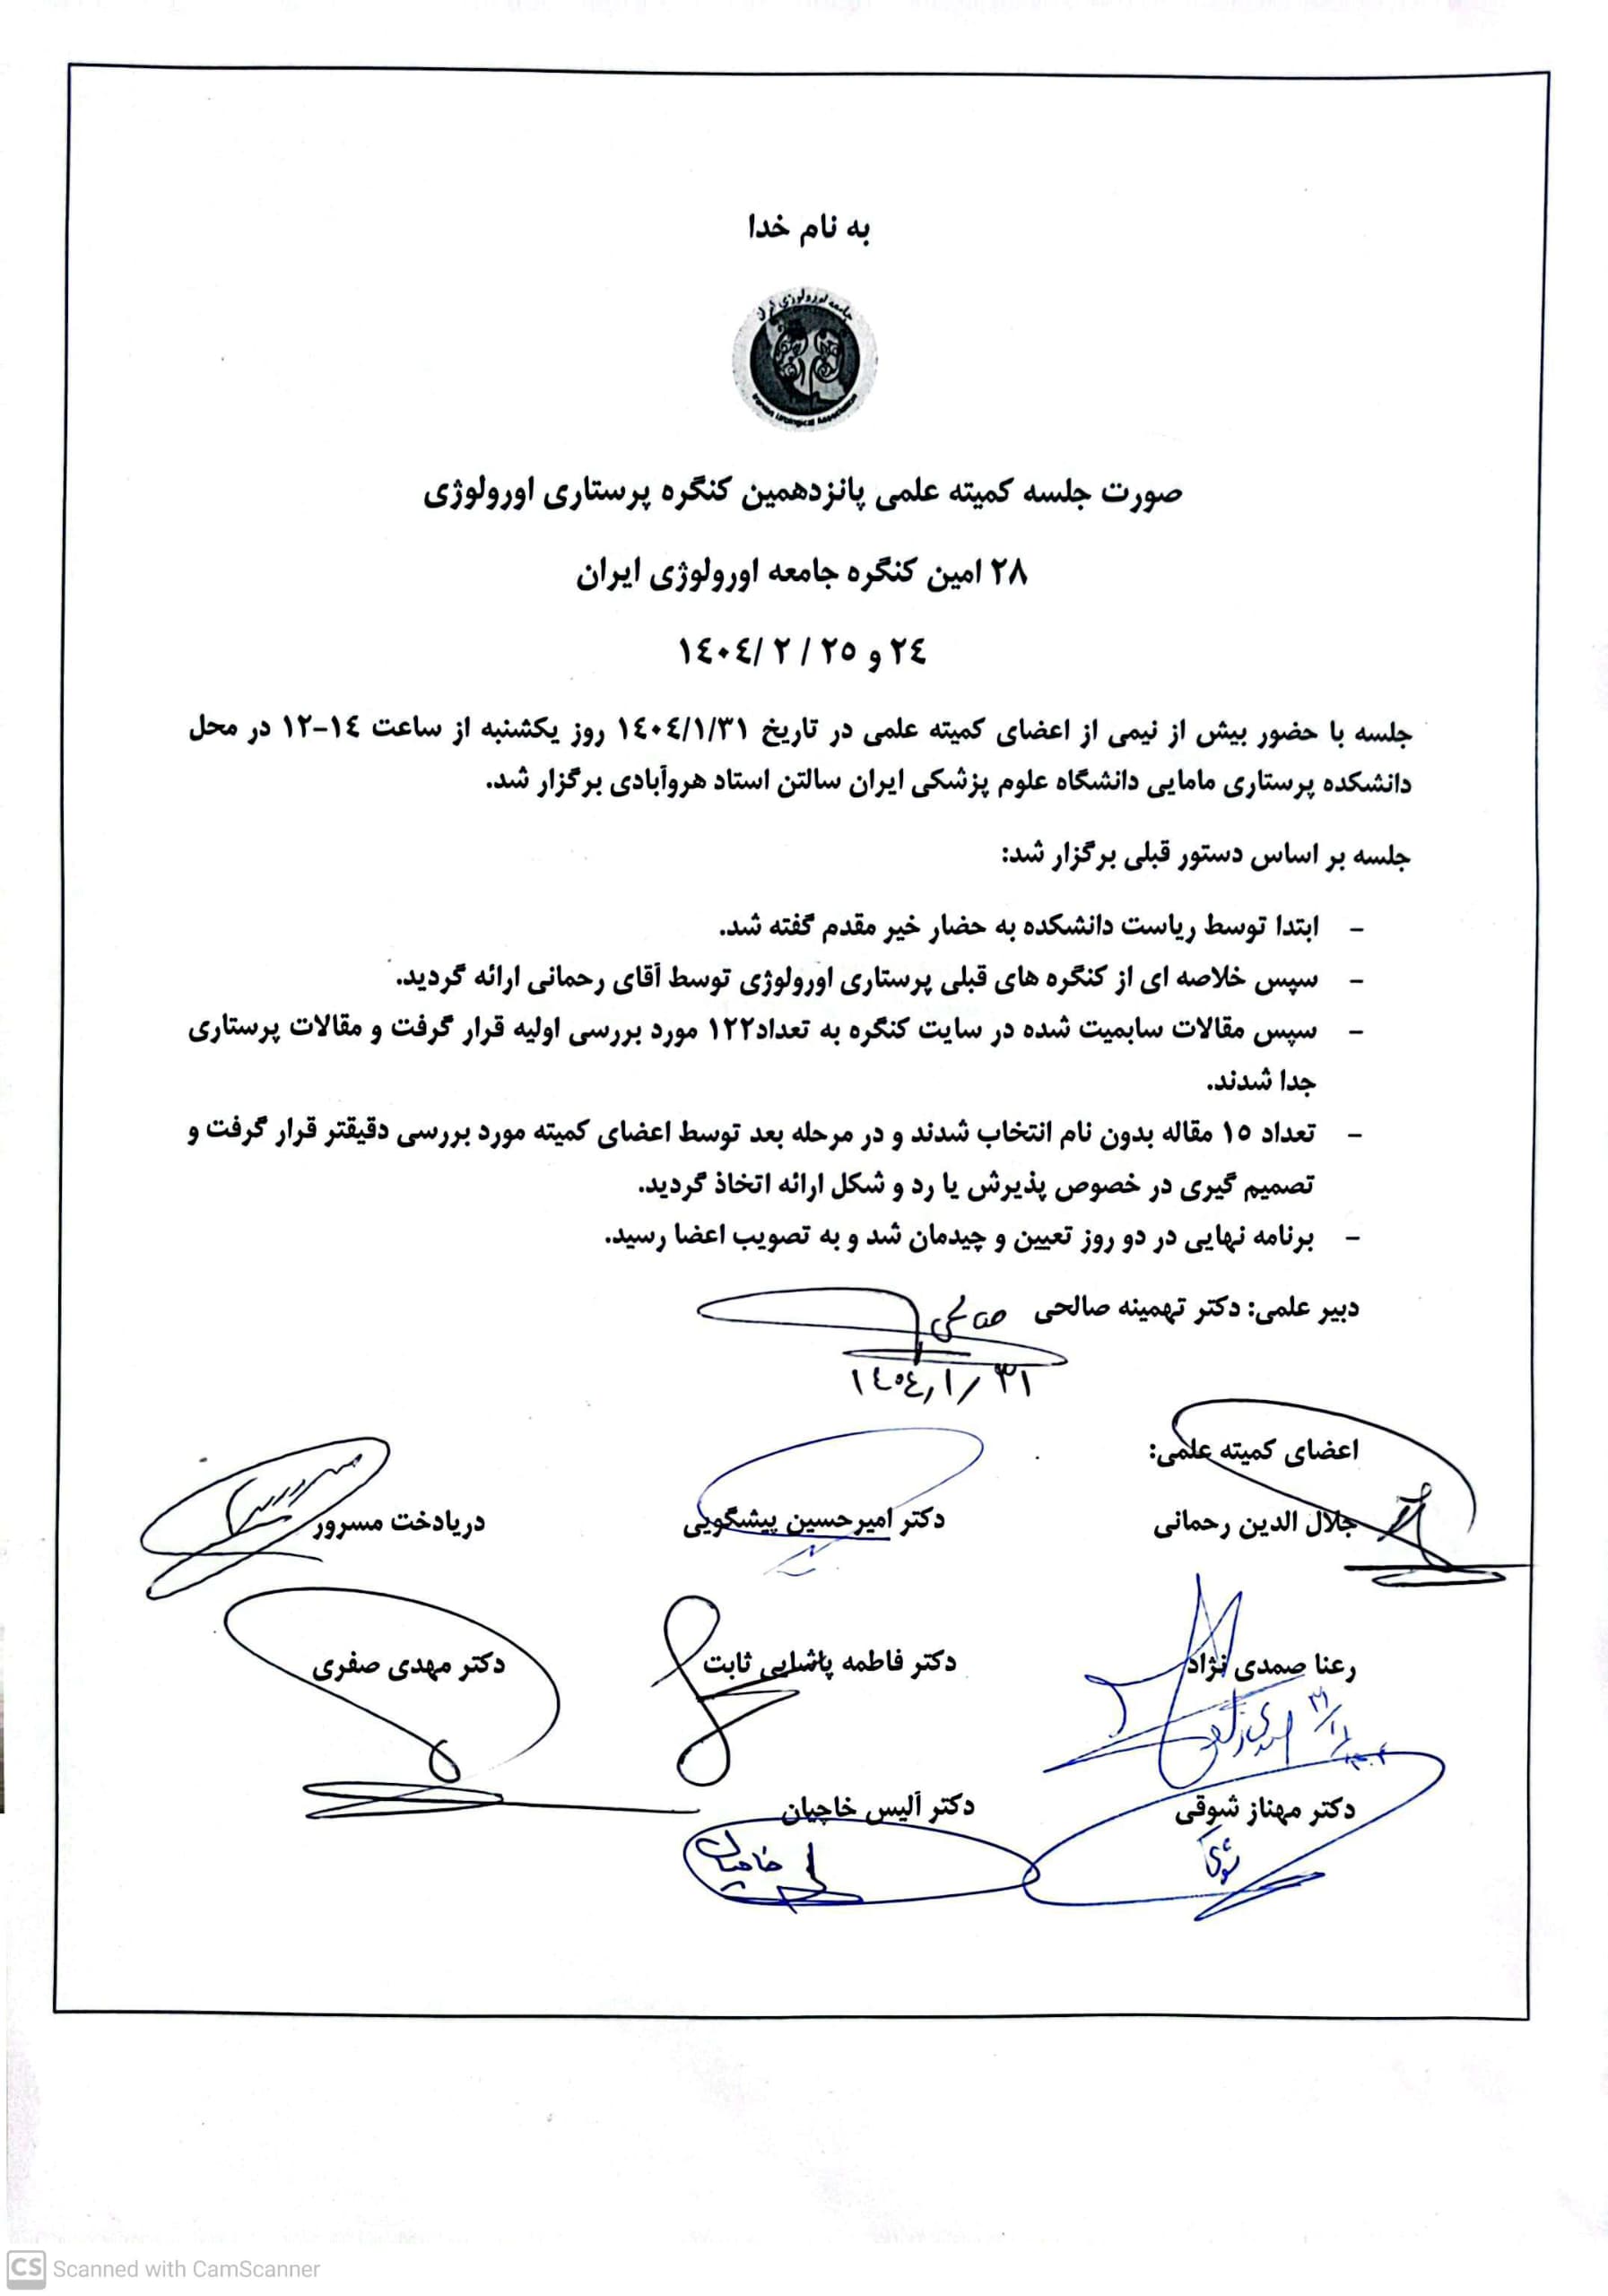 به نام خدا
جامعه اورولوژی ایران
Iranian Urological Association
صورت جلسه کمیته علمی پانزدهمین کنگره پرستاری اورولوژی
۲۸ امین کنگره جامعه اورولوژی ایران
۲٤ و ۲٥ / ۲ /۱٤۰٤
جلسه با حضور بیش از نیمی از اعضای کمیته علمی در تاریخ ۱٤۰٤/۱/۳۱ روز یکشنبه از ساعت ۱٤-۱۲ در محل
دانشکده پرستاری مامایی دانشگاه علوم پزشکی ایران سالتن استاد هروآبادی برگزار شد.
جلسه بر اساس دستور قبلی برگزار شد:
- ابتدا توسط ریاست دانشکده به حضار خیر مقدم گفته شد.
- سپس خلاصه ای از کنگره های قبلی پرستاری اورولوژی توسط آقای رحمانی ارائه گردید.
- سپس مقالات سابمیت شده در سایت کنگره به تعداد۱۲۲ مورد بررسی اولیه قرار گرفت و مقالات پرستاری
جدا شدند.
- تعداد ۱٥ مقاله بدون نام انتخاب شدند و در مرحله بعد توسط اعضای کمیته مورد بررسی دقیقتر قرار گرفت و
تصمیم گیری در خصوص پذیرش یا رد و شکل ارائه اتخاذ گردید.
- برنامه نهایی در دو روز تعیین و چیدمان شد و به تصویب اعضا رسید.
دبیر علمی: دکتر تهمینه صالحی صالحی
۱٤۰٤/۱/۳۱
اعضای کمیته علمی:
جلال الدین رحمانی دکتر امیرحسین پیشگویی دریادخت مسرور
رعنا صمدی نژاد دکتر فاطمه پاشایی ثابت دکتر مهدی صفری
دکتر مهناز شوقی دکتر آلیس خاچیان
شوقی خاچیان
CS Scanned with CamScanner